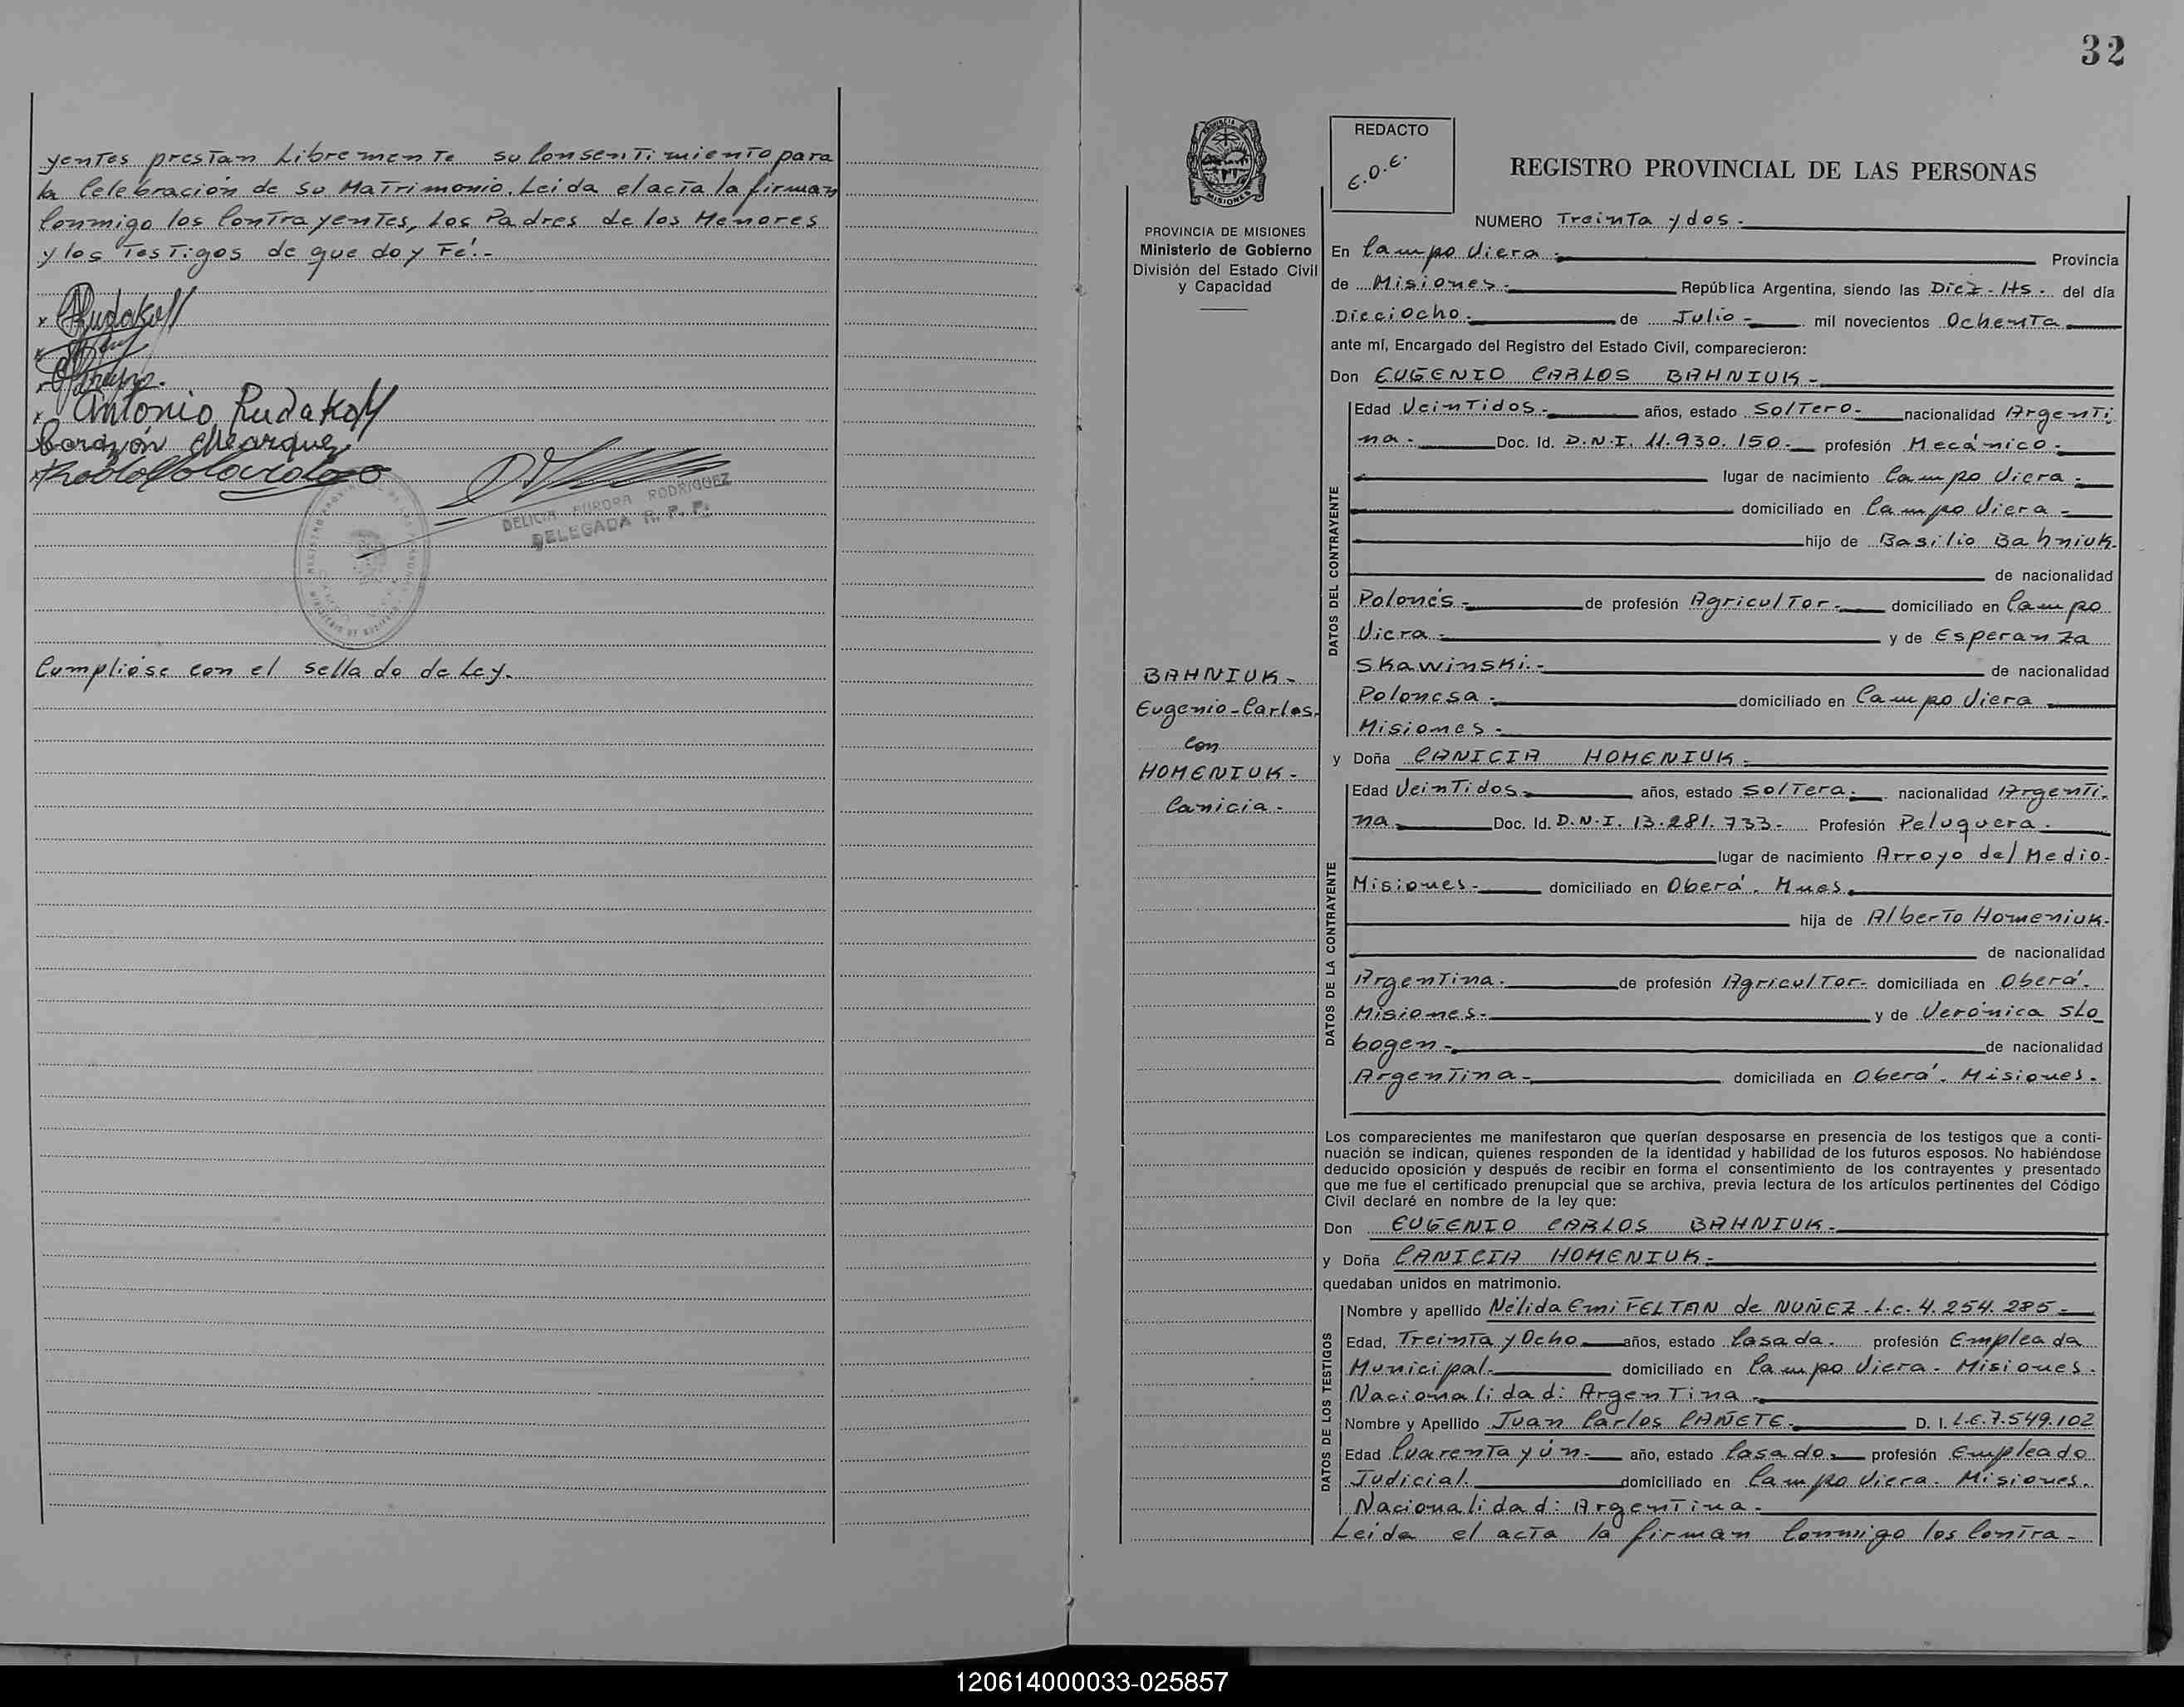 yentes prestan Libremente su Consentimiento para
la Celebración de Su Matrimonio. Leida el acta la firman
Conmigo los Contrayentes, Los Padres de los Menores
y los Testigos de que doy Fé.-
x Rudakoff
x
x
x Antonio Rudakoff
DELICIA AURORA RODRIGUEZ
DELEGADA R. P. P.
Cumplióse con el sellado de Ley.
32
PROVINCIA DE MISIONES
Ministerio de Gobierno
División del Estado Civil
y Capacidad
BAHNIUK -
Eugenio - Carlos.
Con
HOMENIUK -
Canicia -
REDACTO
E.O.E.
REGISTRO PROVINCIAL DE LAS PERSONAS
NUMERO Treinta y dos.-
En Campo Viera.- Provincia
de Misiones.- República Argentina, siendo las Diez - Hs. - del día
Dieciocho.- de Julio - mil novecientos Ochenta
ante mí, Encargado del Registro del Estado Civil, comparecieron:
Don EUGENIO CARLOS BAHNIUK -
DATOS DEL CONTRAYENTE
Edad Veintidos.- años, estado Soltero- nacionalidad Argenti-
na.- Doc. Id. D.N.I. 11.930.150.- profesión Mecánico.-
lugar de nacimiento Campo Viera.-
domiciliado en Campo Viera -
hijo de Basilio Bahniuk
de nacionalidad
Polonés.- de profesión Agricultor.- domiciliado en Campo
Viera.- y de Esperanza
Skawinski.- de nacionalidad
Polonesa.- domiciliado en Campo Viera
Misiones.-
y Doña CANICIA HOMENIUK.-
DATOS DE LA CONTRAYENTE
Edad Veintidos.- años, estado Soltera.- nacionalidad Argenti-
na Doc. Id. D.N.I. 13.281.733.- Profesión Peluquera.-
lugar de nacimiento Arroyo del Medio-
Misiones.- domiciliado en Oberá. Mnes.
hija de Alberto Homeniuk-
de nacionalidad
Argentina.- de profesión Agricultor- domiciliada en Oberá-
Misiones.- y de Verónica Slo
bogen.- de nacionalidad
Argentina.- domiciliada en Oberá. Misiones.-
Los comparecientes me manifestaron que querían desposarse en presencia de los testigos que a conti-
nuación se indican, quienes responden de la identidad y habilidad de los futuros esposos. No habiéndose
deducido oposición y después de recibir en forma el consentimiento de los contrayentes y presentado
que me fue el certificado prenupcial que se archiva, previa lectura de los artículos pertinentes del Código
Civil declaré en nombre de la ley que:
Don EUGENIO CARLOS BAHNIUK.-
y Doña CANICIA HOMENIUK.-
quedaban unidos en matrimonio.
DATOS DE LOS TESTIGOS
Nombre y apellido Nélida Emi FELTAN de NUÑEZ - L.C. 4.254.285 -
Edad, Treinta y Ocho años, estado Casada. profesión Empleada
Municipal.- domiciliado en Campo Viera - Misiones.
Nacionalidad: Argentina.-
Nombre y Apellido Juan Carlos CAÑETE.- D. I. L.E. 7.549.102
Edad Cuarenta y ún.- año, estado Casado.- profesión Empleado
Judicial. domiciliado en Campo Viera. Misiones.
Nacionalidad: Argentina.-
Leida el acta la firman Conmigo los Contra-
120614000033-025857